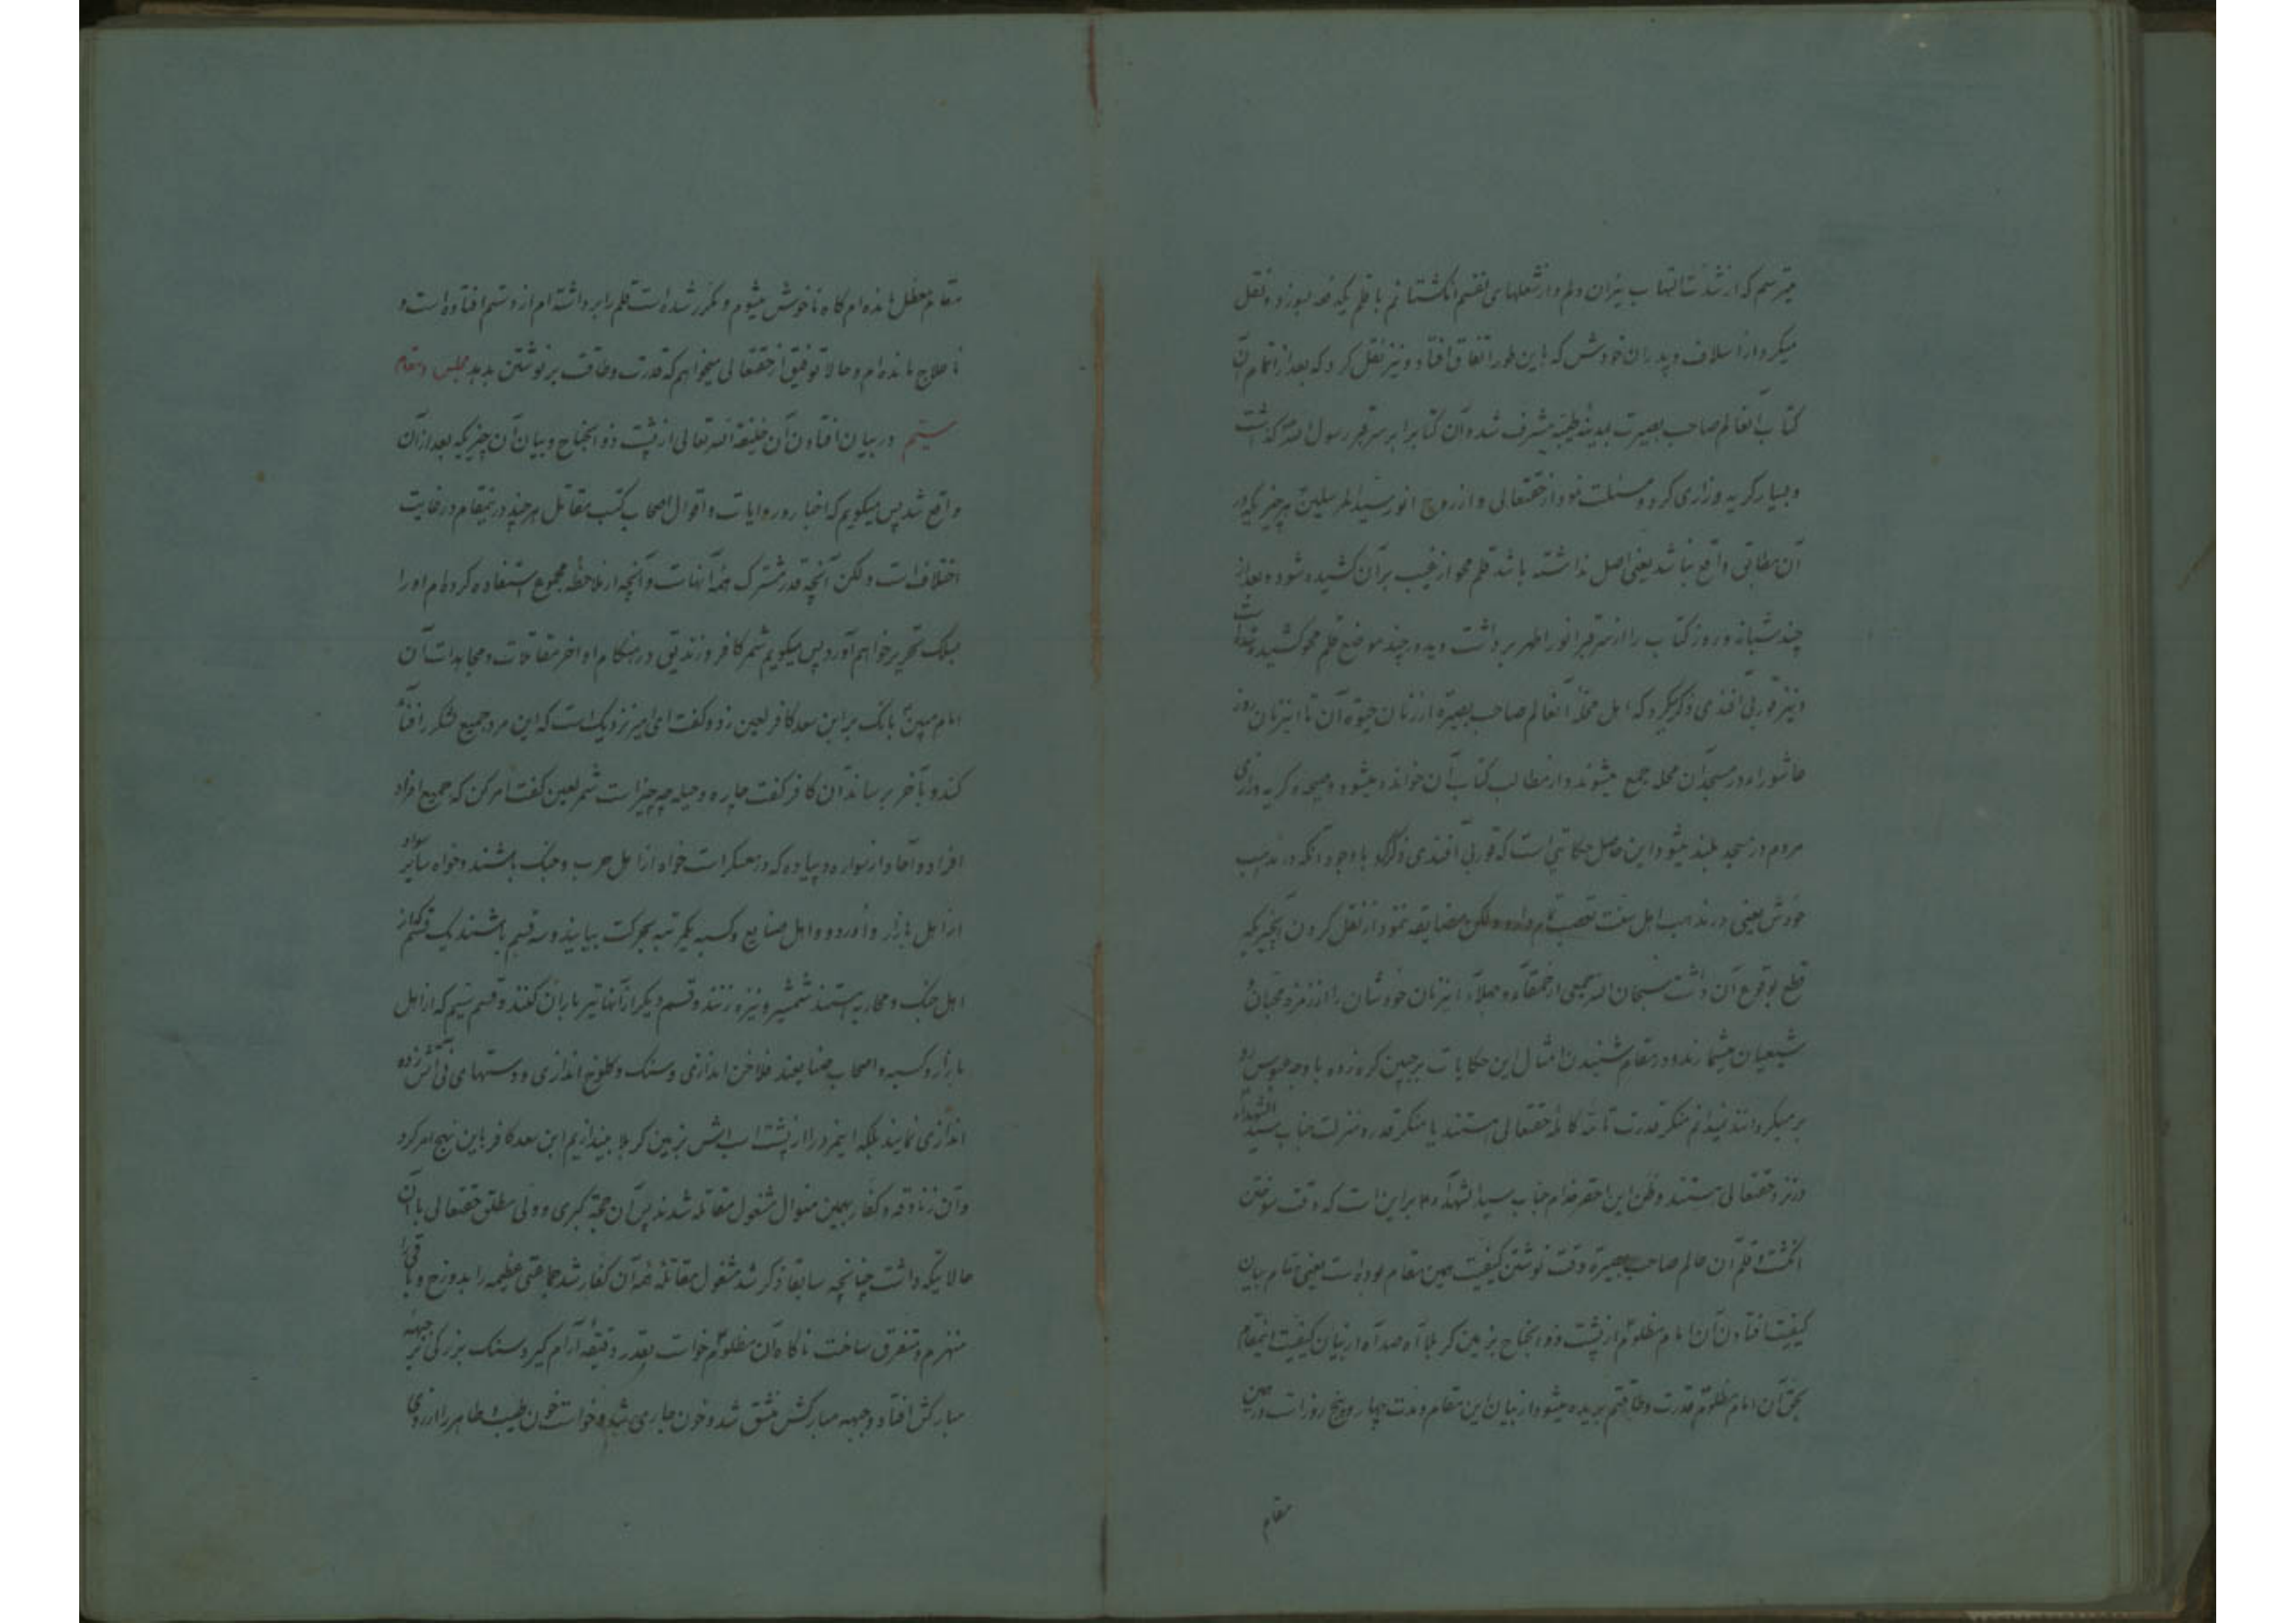 میترسم که از شدت التهاب نیران دلم و از شعلهای نفسم انگشتانم با قلم یکدفعه بسوزد و نقل
میکرد از اسلاف و پدران خودش که این طور اتفاق افتاد و نیز نقل کرد که بعد از اتمام آن
کتاب آنعالم صاحب بصیرت بمدینهٔ طیبه مشرف شد و آن کتابرا بر سر قبر رسول الله گذاشت
و بسیار گریه و زاری کرد و مسئلت نمود از حقتعالی و از روح انور سید المرسلین هر چیزیکه در
آن مطابق واقع نباشد یعنی اصل نداشته باشد قلم محو از غیب بر آن کشیده شود و بعد از
چند شبانه و روز کتاب را از سر قبر انور اطهر برداشت و دید در چند موضع قلم محو کشیده شده است
و نیز قوربی افندی ذکر میکرد که اهل محلهٔ آنعالم صاحب بصیرة از زمان حیوة آن تا اینزمان روز
عاشوراء در مسجد آن محله جمع میشوند و از مطالب کتاب آن خوانده میشود و صیحه و گریه و زاری
مردم در مسجد بلند میشود این حاصل حکایتی است که قوربی افندی ذکر کرد با وجود آنکه در مذهب
خودش یعنی در مذهب اهل سنت تعصب تام داشت ولکن مضایقه ننمود از نقل کردن آنچیزیکه
قطع بوقوع آن داشت سبحان الله جمعی از حمقاء و جهلاء اینزمان خودشان را از زمره محبان و
شیعیان میشمارند و در مقام شنیدن امثال این حکایات بر جبین گره زده با وجه عبوس رو
بر میگردانند نمیدانم منکر قدرت تامهٔ کاملهٔ حقتعالی هستند یا منکر قدر و منزلت جناب سید الشهداء
در نزد حقتعالی هستند و ظن این احقر خدام جناب سید الشهداء بر این است که وقت سوختن
انگشت و قلم آن عالم صاحب بصیرة وقت نوشتن کیفیت همین مقام بوده است یعنی مقام بیان
کیفیت افتادن آن امام مظلوم از پشت ذو الجناح بزمین کربلا آه صد آه از بیان کیفیت اینمقام
بحق آن امام مظلوم قدرت و طاقتم بریده میشود از بیان این مقام و مدت چهار و پنج روز است در همین
مقام
مقام معطل مانده‌ام گاه ناخوش میشوم و مکرر شده است قلم را برداشته‌ام از دستم افتاده است و
ناعلاج مانده‌ام و حالا توفیق از حقتعالی میخواهم که قدرت و طاقت بر نوشتن بدهد مجلس و مقام
سیّم در بیان افتادن آن خلیفة الله تعالی از پشت ذو الجناح و بیان آن چیزیکه بعد از آن
واقع شد پس میگویم که اخبار و روایات و اقوال اصحاب کتب مقاتل هر چند در اینمقام در غایت
اختلاف است ولکن آنچه قدر مشترک همهٔ آنهاست و آنچه از ملاحظهٔ مجموع استفاده کرده‌ام او را
بسلک تحریر خواهم آورد پس میگویم شمر کافر و زندیق در هنگام اواخر مقاتلات و مجاهدات آن
امام مبین بانگ بر ابن سعد کافر لعین زد و گفت ای امیر نزدیک است که این مرد جمیع لشکر را فنا
کند و بآخر برساند آن کافر گفت چاره و حیله چه چیز است شمر لعین گفت امر کن که جمیع افراد
افراد و آحاد از سواره و پیاده که در معسکر است خواه از اهل حرب و جنگ باشند و خواه سایر سواد
از اهل بازار و اوردو و اهل صنایع و کسبه یکمرتبه بحرکت بیایند و سه قسم باشند یک قسم که از
اهل جنگ و محاربه هستند شمشیر و نیزه زنند و قسم دیگر از آنها تیر باران کنند و قسم سیّم که از اهل
بازار و کسبه و اصحاب صنایعند فلاخن اندازی و سنگ و کلوخ اندازی و دستهای نی آتش زده
اندازی نمایند بلکه اینمرد را از پشت اسبش بزمین کربلا بیندازیم ابن سعد کافر باین نهج امر کرد
و آن زنادقه و کفار بهمین منوال مشغول مقاتله شدند پس آن حجة کبری و ولی مطلق حقتعالی با آن
حالاتیکه داشت چنانچه سابقا ذکر شد مشغول مقاتلهٔ همه آن کفار شد جماعتی عظیمه را بدوزخ و باقی را
منهزم و متفرق ساخت ناگاه آن مظلوم خواست بقدر دقیقهٔ آرام گیرد سنگ بزرگی بر جبههٔ
مبارکش افتاد و جبههٔ مبارکش منشق شد و خون جاری شد و خواست خون طیب و طاهر را از روی